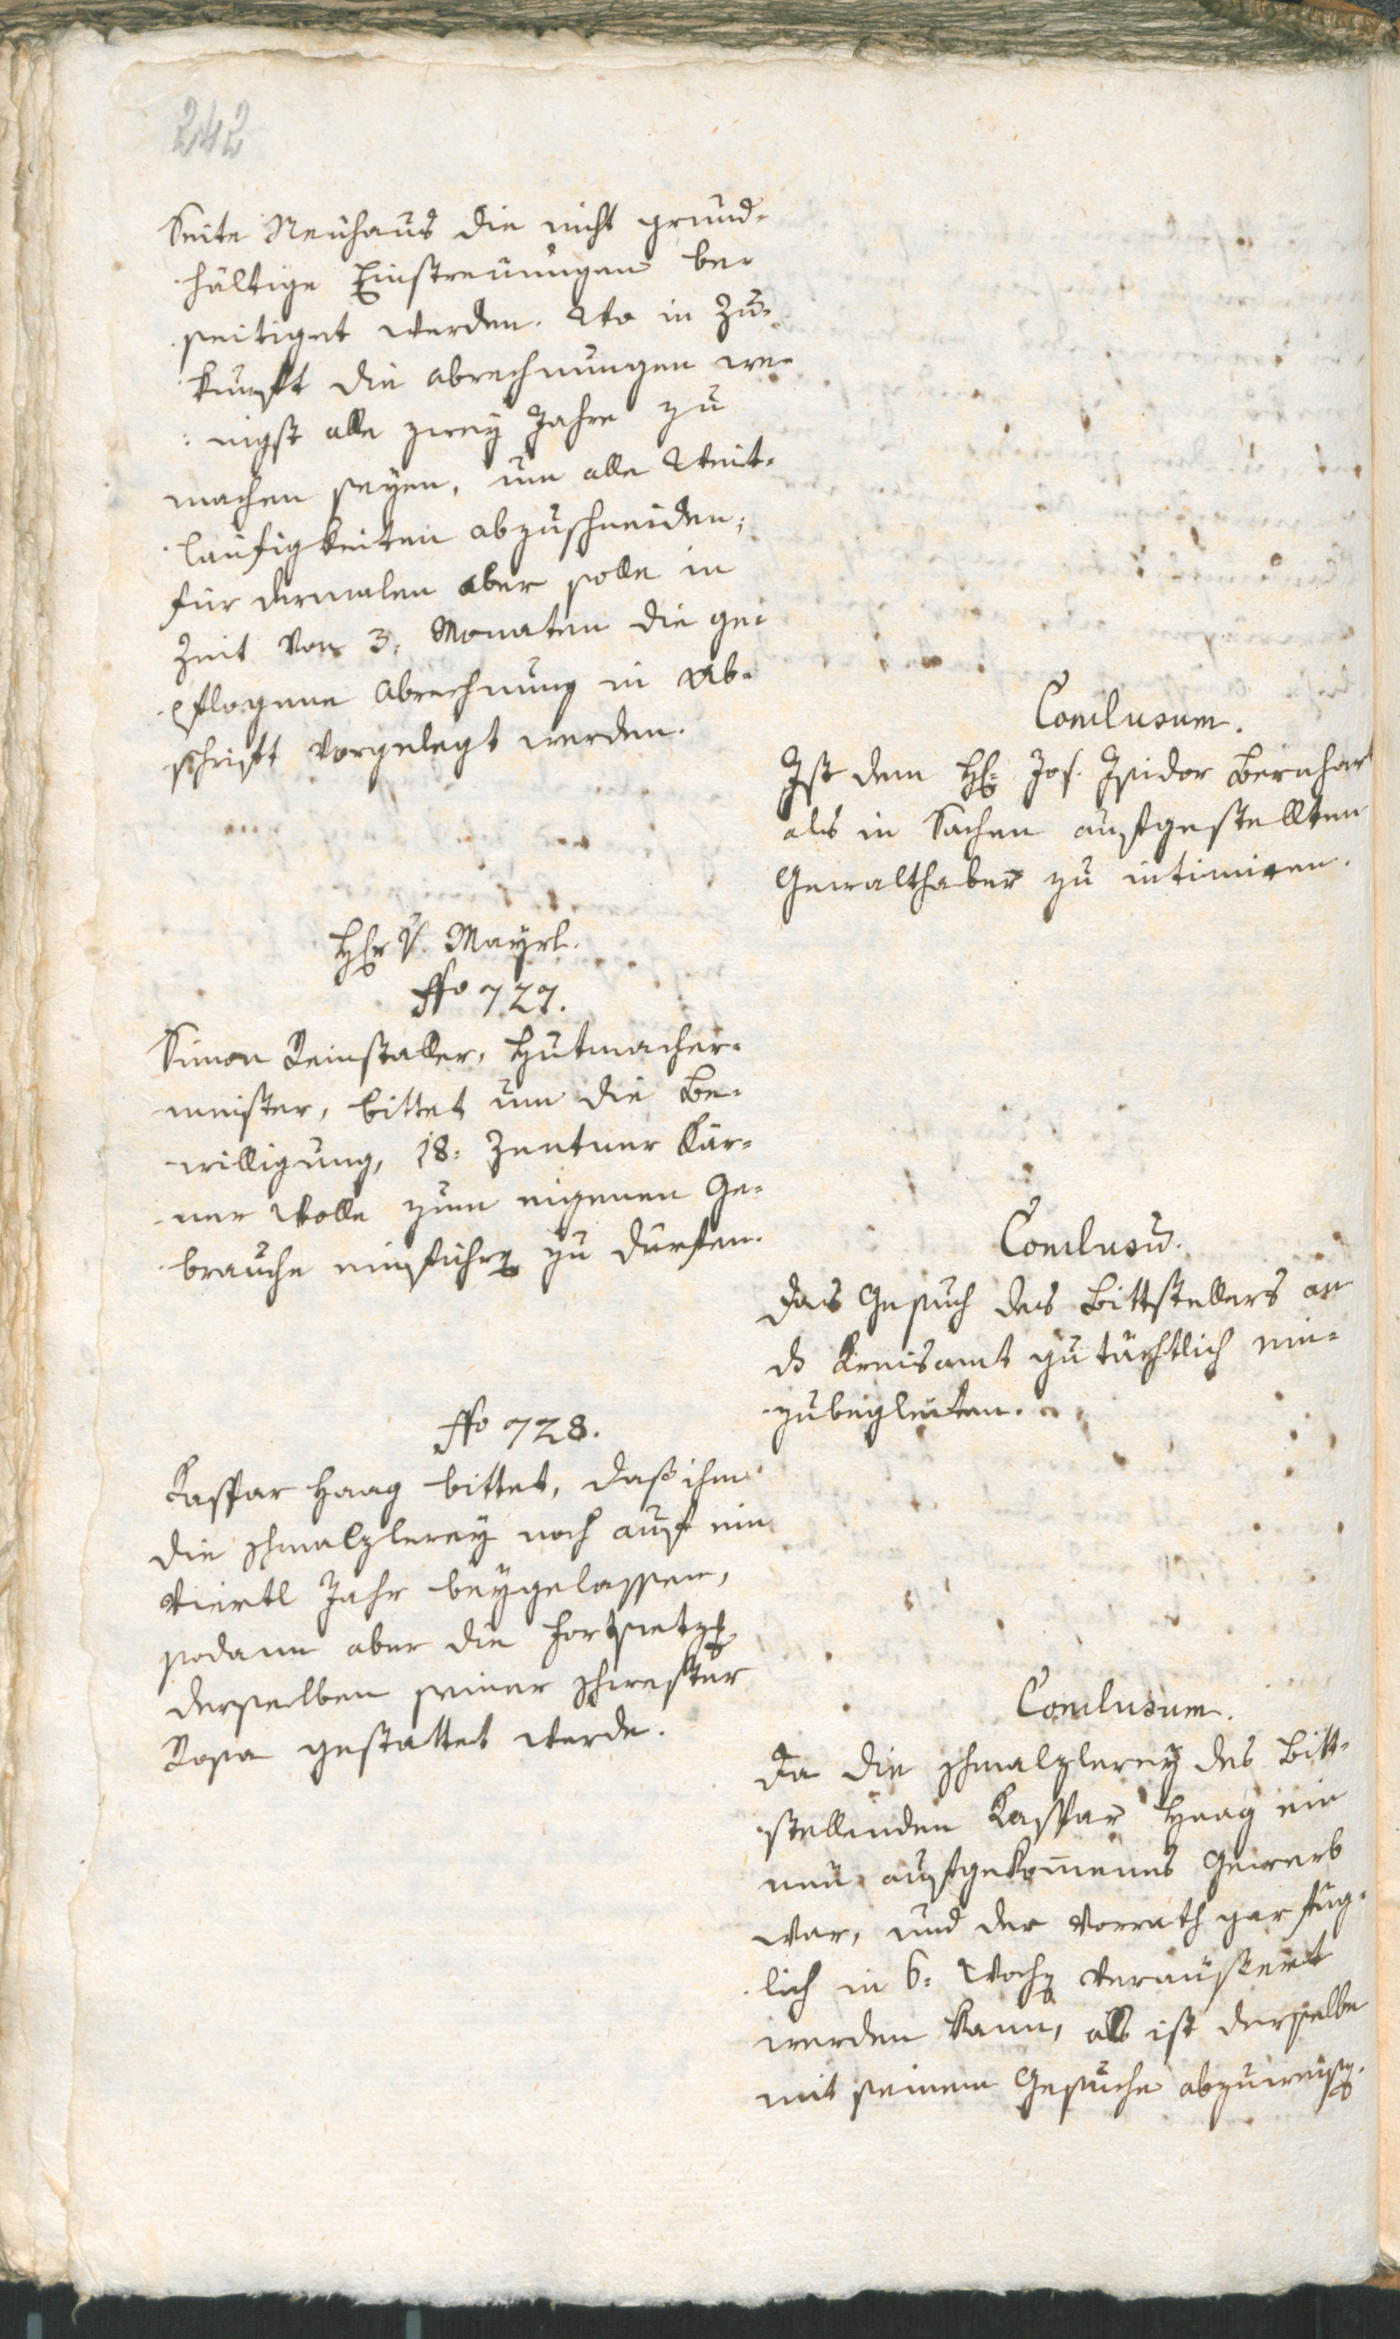 242
Seite Neuhaus die nicht grund-
hältige Einstreuungen be-
seitiget werden. Wo in Zu-
kunft die abrechnungen we-
nigst alle zwey Jahre zu
machen seyen, um alle Weit-
läufigkeiten abzuschneiden;
für dermalen aber solle in
Zeit von 3: Monaten die ge-
pflogene abrechnung in Ab-
schrift vorgelegt werden.
Conclusum.
Ist dem H: Jos. Isidor Bernhart
als in Sachen aufgestellten
Gewalthaber zu intimiren.
H: v. Mayrl.
No 727.
Simon Reinstaller, Hutmacher-
meister, bittet um die Be-
willigung, 18: Zentner Kär-
ner Wolle zum eigenen Ge-
brauche einführen zu dürfen.
Conclusū.
Das Gesuch des Bittstellers an
ds Kreisamt gutächtlich ein-
zubegleiten.
No 728.
Kaspar Haag bittet, daß ihm
die schmalzlerey noch auf ein
viertl Jahr beygelassen,
sodann aber die fortsetzg
derselben seiner schwester
Rosa gestattet werde.
Conclusum.
Da die schmalzlerey des Bitt-
stellenden Kaspar Haag ein
neu aufgekom̅enes Gewerb
war, und der Vorrath gar füg-
lich in 6: Wochen veräußert
werden kann, als ist derselbe
mit seinem Gesuche abzuweisen.